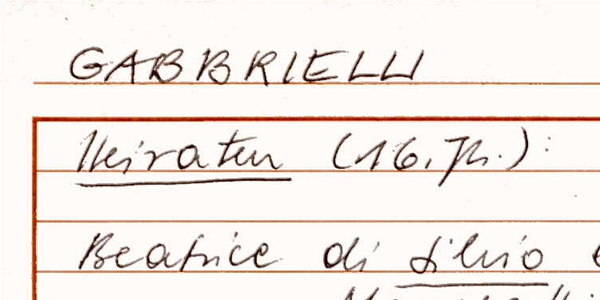 GABBRIELLI
Heiraten (16. Jh.):
Beatrice di Silvio